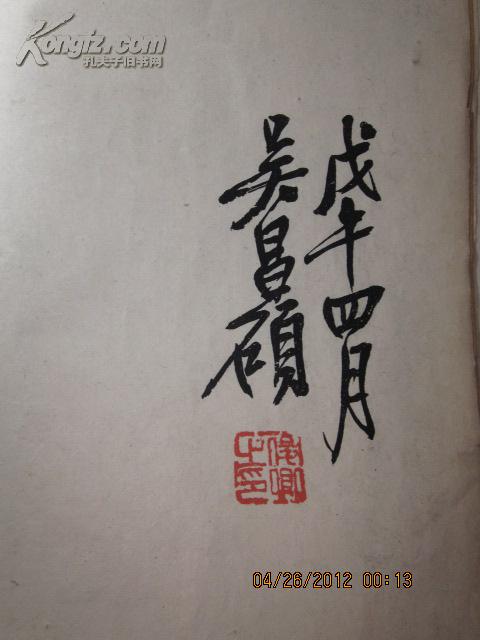 Kongfz.com
孔夫子旧书网
戊午四月
吴昌硕
俊卿之印
04/26/2012 00:13